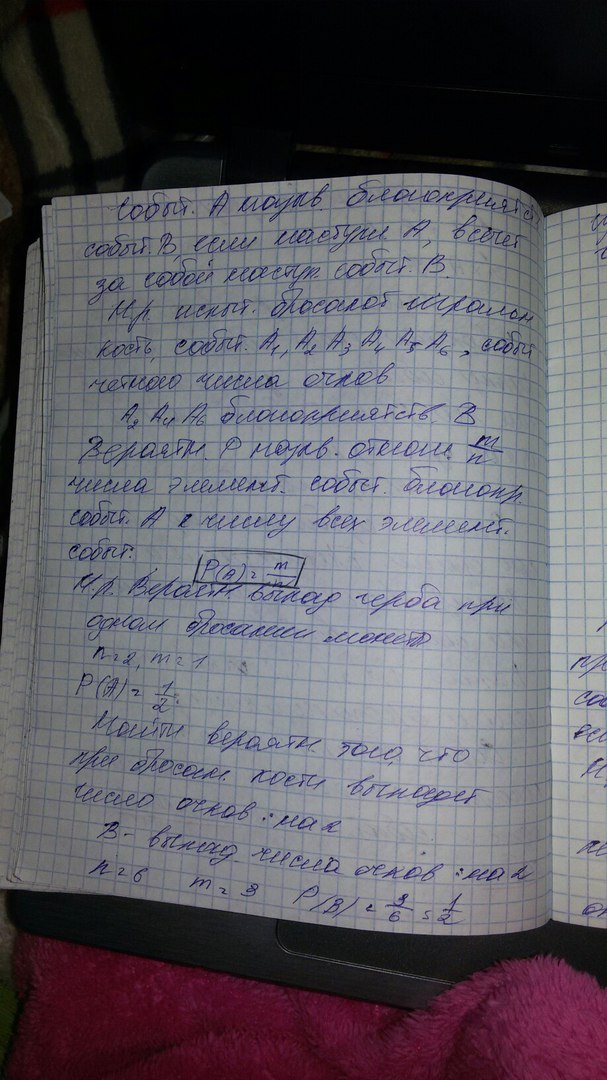 Событ. А назыв благоприятст
событ. В, если наступл А, влечёт
за собой наступ. событ. В.
Нр. испыт. бросают игральн
кость, событ. А₁, А₂ А₃ А₄ А₅ А₆, событ
четного числа очков
А₂ А₄ А₆ благоприятств. В
Вероятн. Р назыв. отнош. m/n
числа элемент. событ. благопр.
событ. А к числу всех элемент.
событ.
P(A) = m/n
Н.р. Вероятн выпад герба при
одном бросании монет
n=2, m=1
P(A) = 1/2.
Найти вероятн того, что
при бросан. кости выпадет
число очков : на 2
В - выпад числа очков : на 2
n=6 m=3 P(B) = 3/6 = 1/2